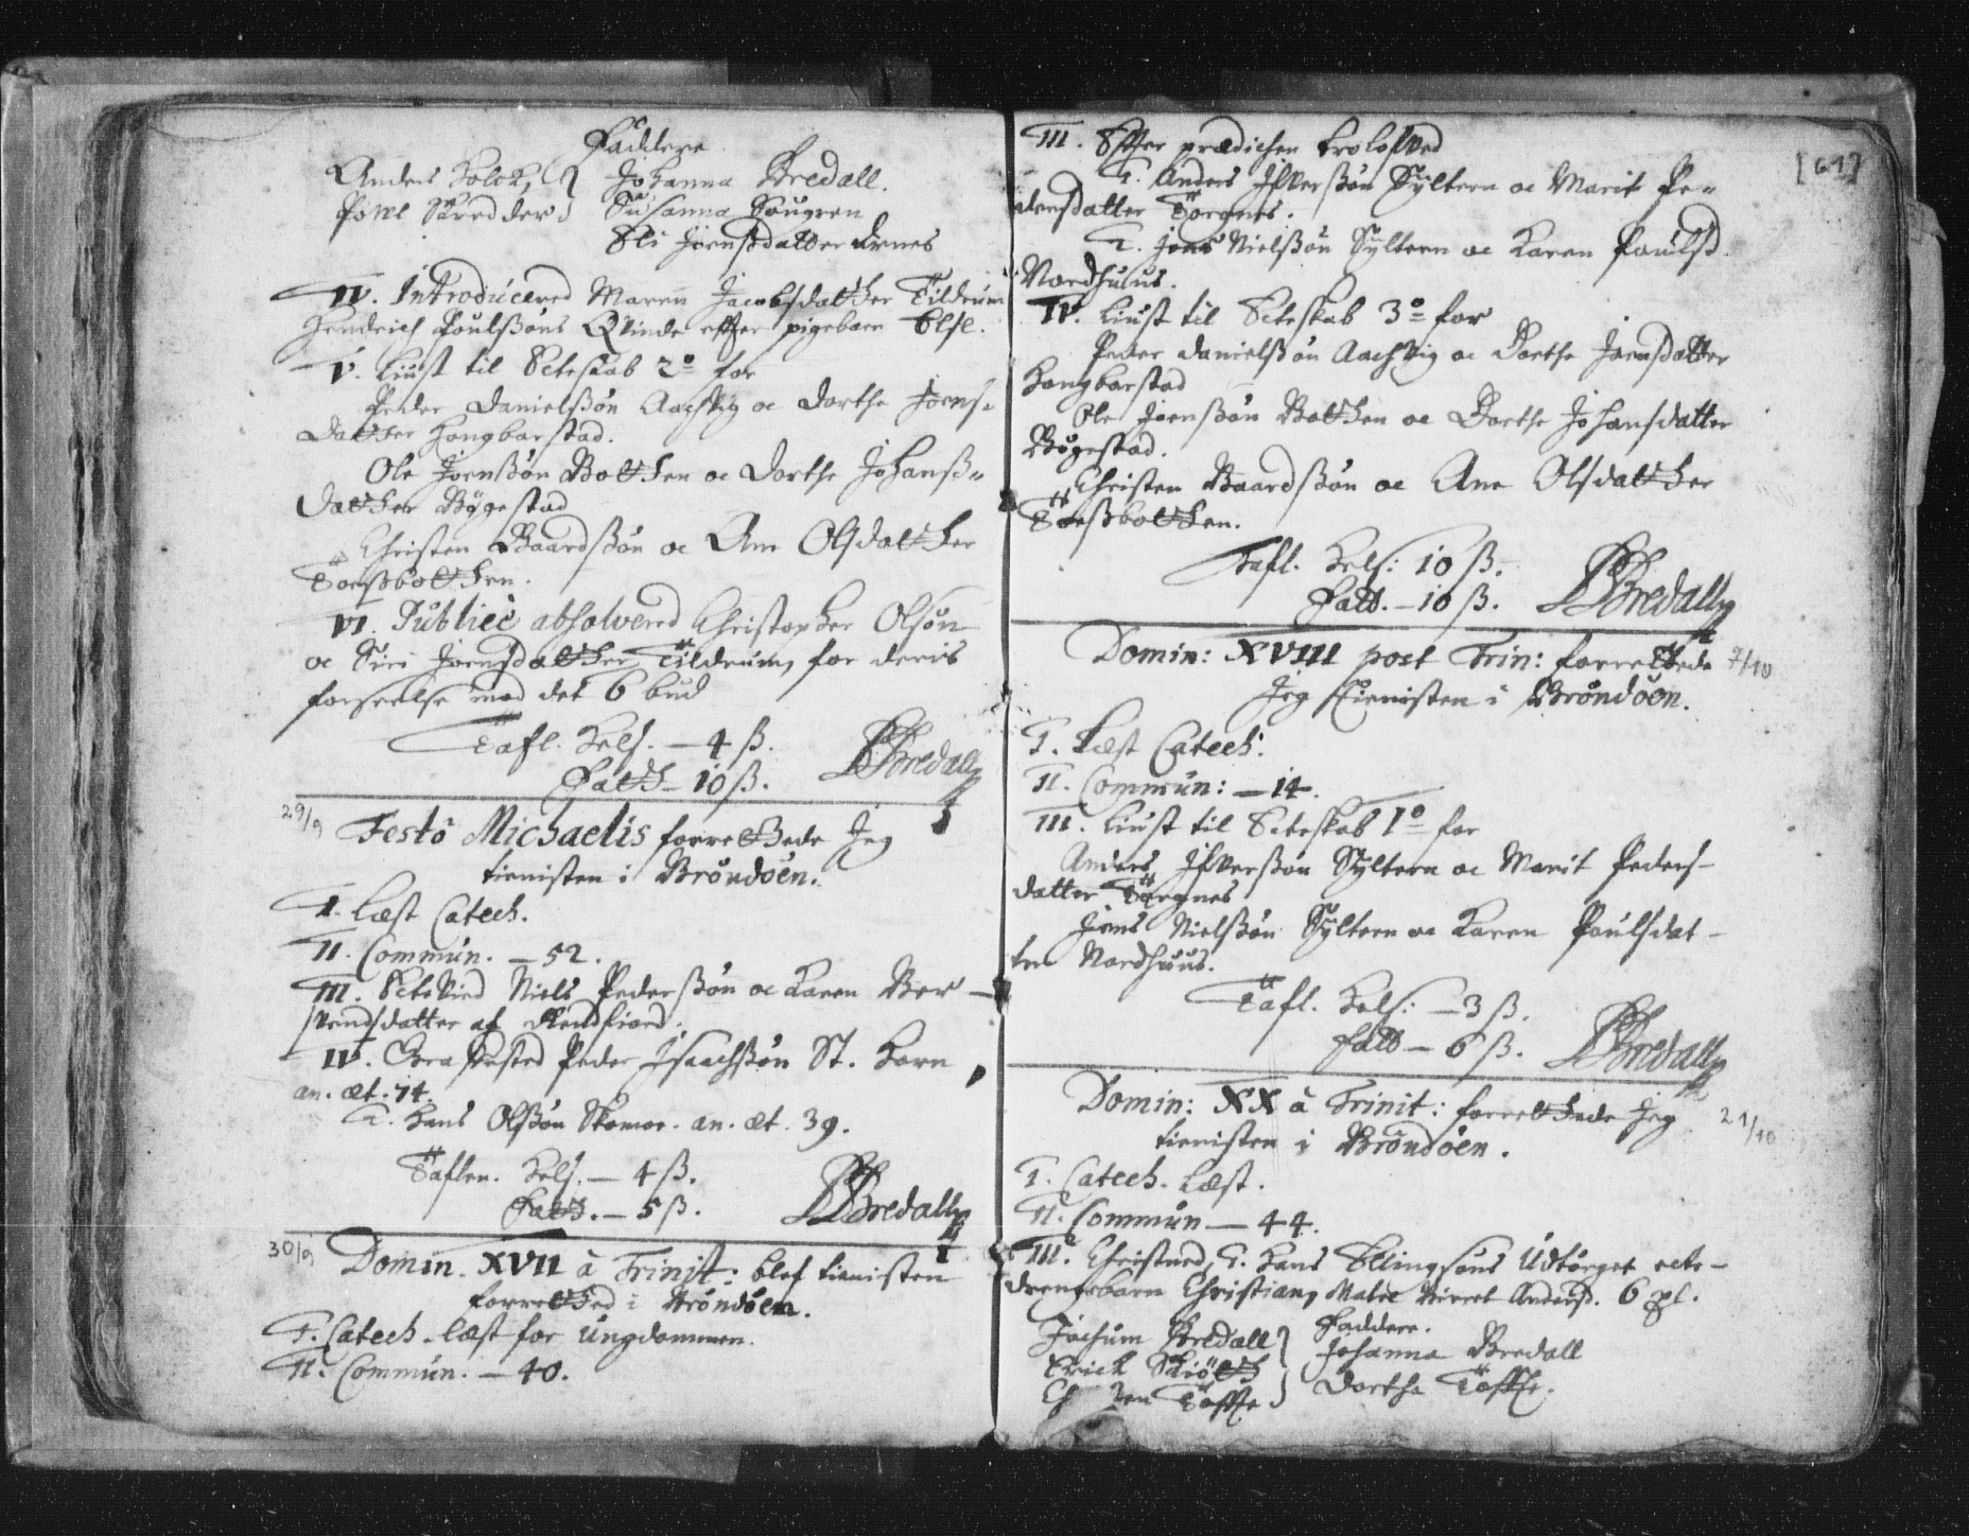 Faddere
Anders Holck, Johanna Bredall.
Jøns Skredder Susanna Sougren
Eli Joensdatter Arnes
IV. Introducered Maren Jacobsdatther Tildrum
Hendrich Poulsøns Qvinde effter pigebarn Else.
V. Liust til Ecteskab 2o for
Peder Danielsøn Aachvig oc Dorthe Joens-
datther Hongbarstad.
Ole Joensøn Botthen oc Dorthe Johans-
datther Bøgestad
Christen Baardsøn oc Ane Olsdatther
Torsbotthen.
VI. Publicè absolvered Christopher Olsøn
oc Siri Joensdatther Tildrum, for deris
forseelse mod det 6 bud
Tafl. Hels. – 4 ß.
Fatth – 10 ß. Bredall
29/9 Festô Michaelis forretthede Jeg
tienisten i Brøndöen.
I. Læst Catech.
II. Commun. – 52.
III. Ectevied Niels Pedersøn oc Karen Ber-
svendsdatter af
IV. Peder Isaachsøn St. Horn
an. æt. 74.
T. Hans Olsøn Skomoe. an. æt. 39.
Taflen. Hels. – 4 ß.
Fatth. – 5 ß. Bredall
30/9 Domin. XVII à Trinit: blef tienisten
forretthed i Brøndöen.
I. Catech. læst for Ungdommen.
II. Commun. – 40.
[61]
III. Effter prædichen trolofved
T. Anders Ifversøn Syltern oc Marit Pe-
dersdatter Torgnes.
T. Jens Nielsøn Syltern oc Karen Poulsd.
Nordhuus.
IV. Liust til Ecteskab 3o for
Peder Danielsøn Aachvig oc Dorthe Joensdatter
Hongbarstad
Ole Joensøn Botthen oc Dorthe Johansdatter
Bøgestad.
Christen Baardsøn oc Ane Olsdatther
Torsbotthen.
Tafl. Hels: 10 ß.
Fatt. – 10 ß. Bredall
Domin: XVIII post Trin: forretthede 7/10
Jeg tienisten i Brøndöen.
I. Læst Catech:
II. Commun: – 14.
III. Liust til Ecteskab 1o for
Anders Ifversøn Syltern oc Marit Peders-
datter Torgnes
Jens Nielsøn Syltern oc Karen Poulsdat-
ter Nordhuus.
Tafl. Hels: – 3 ß.
Fatt – 6 ß. Bredall
Domin: XX à Trinit: forretthede Jeg 21/10
tienisten i Brøndöen.
I. Catech. læst.
II. Commun – 44.
III. Christned, T. Hans Ellingsøns Udtorget ecte-
drengebarn Christian, Mater Anders. 6
Faddere.
Jochum Bredall Johanna Bredall
Erick Schiøtt Dorthe Toffte.
Toffte